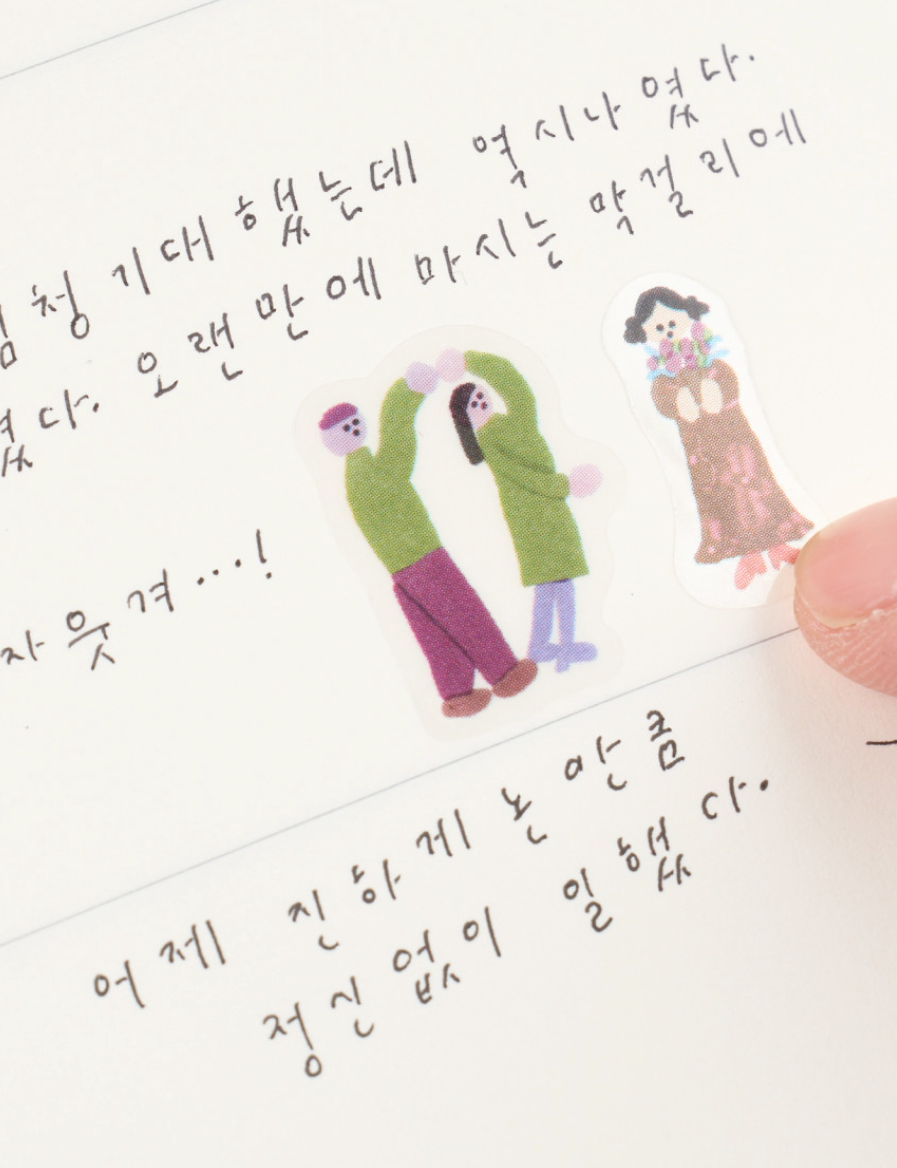 청 기대했는데 역시나였다.
다. 오랜만에 마시는 막걸리에
자 웃겨...!
어제 진하게 논 만큼
정신없이 일했다.